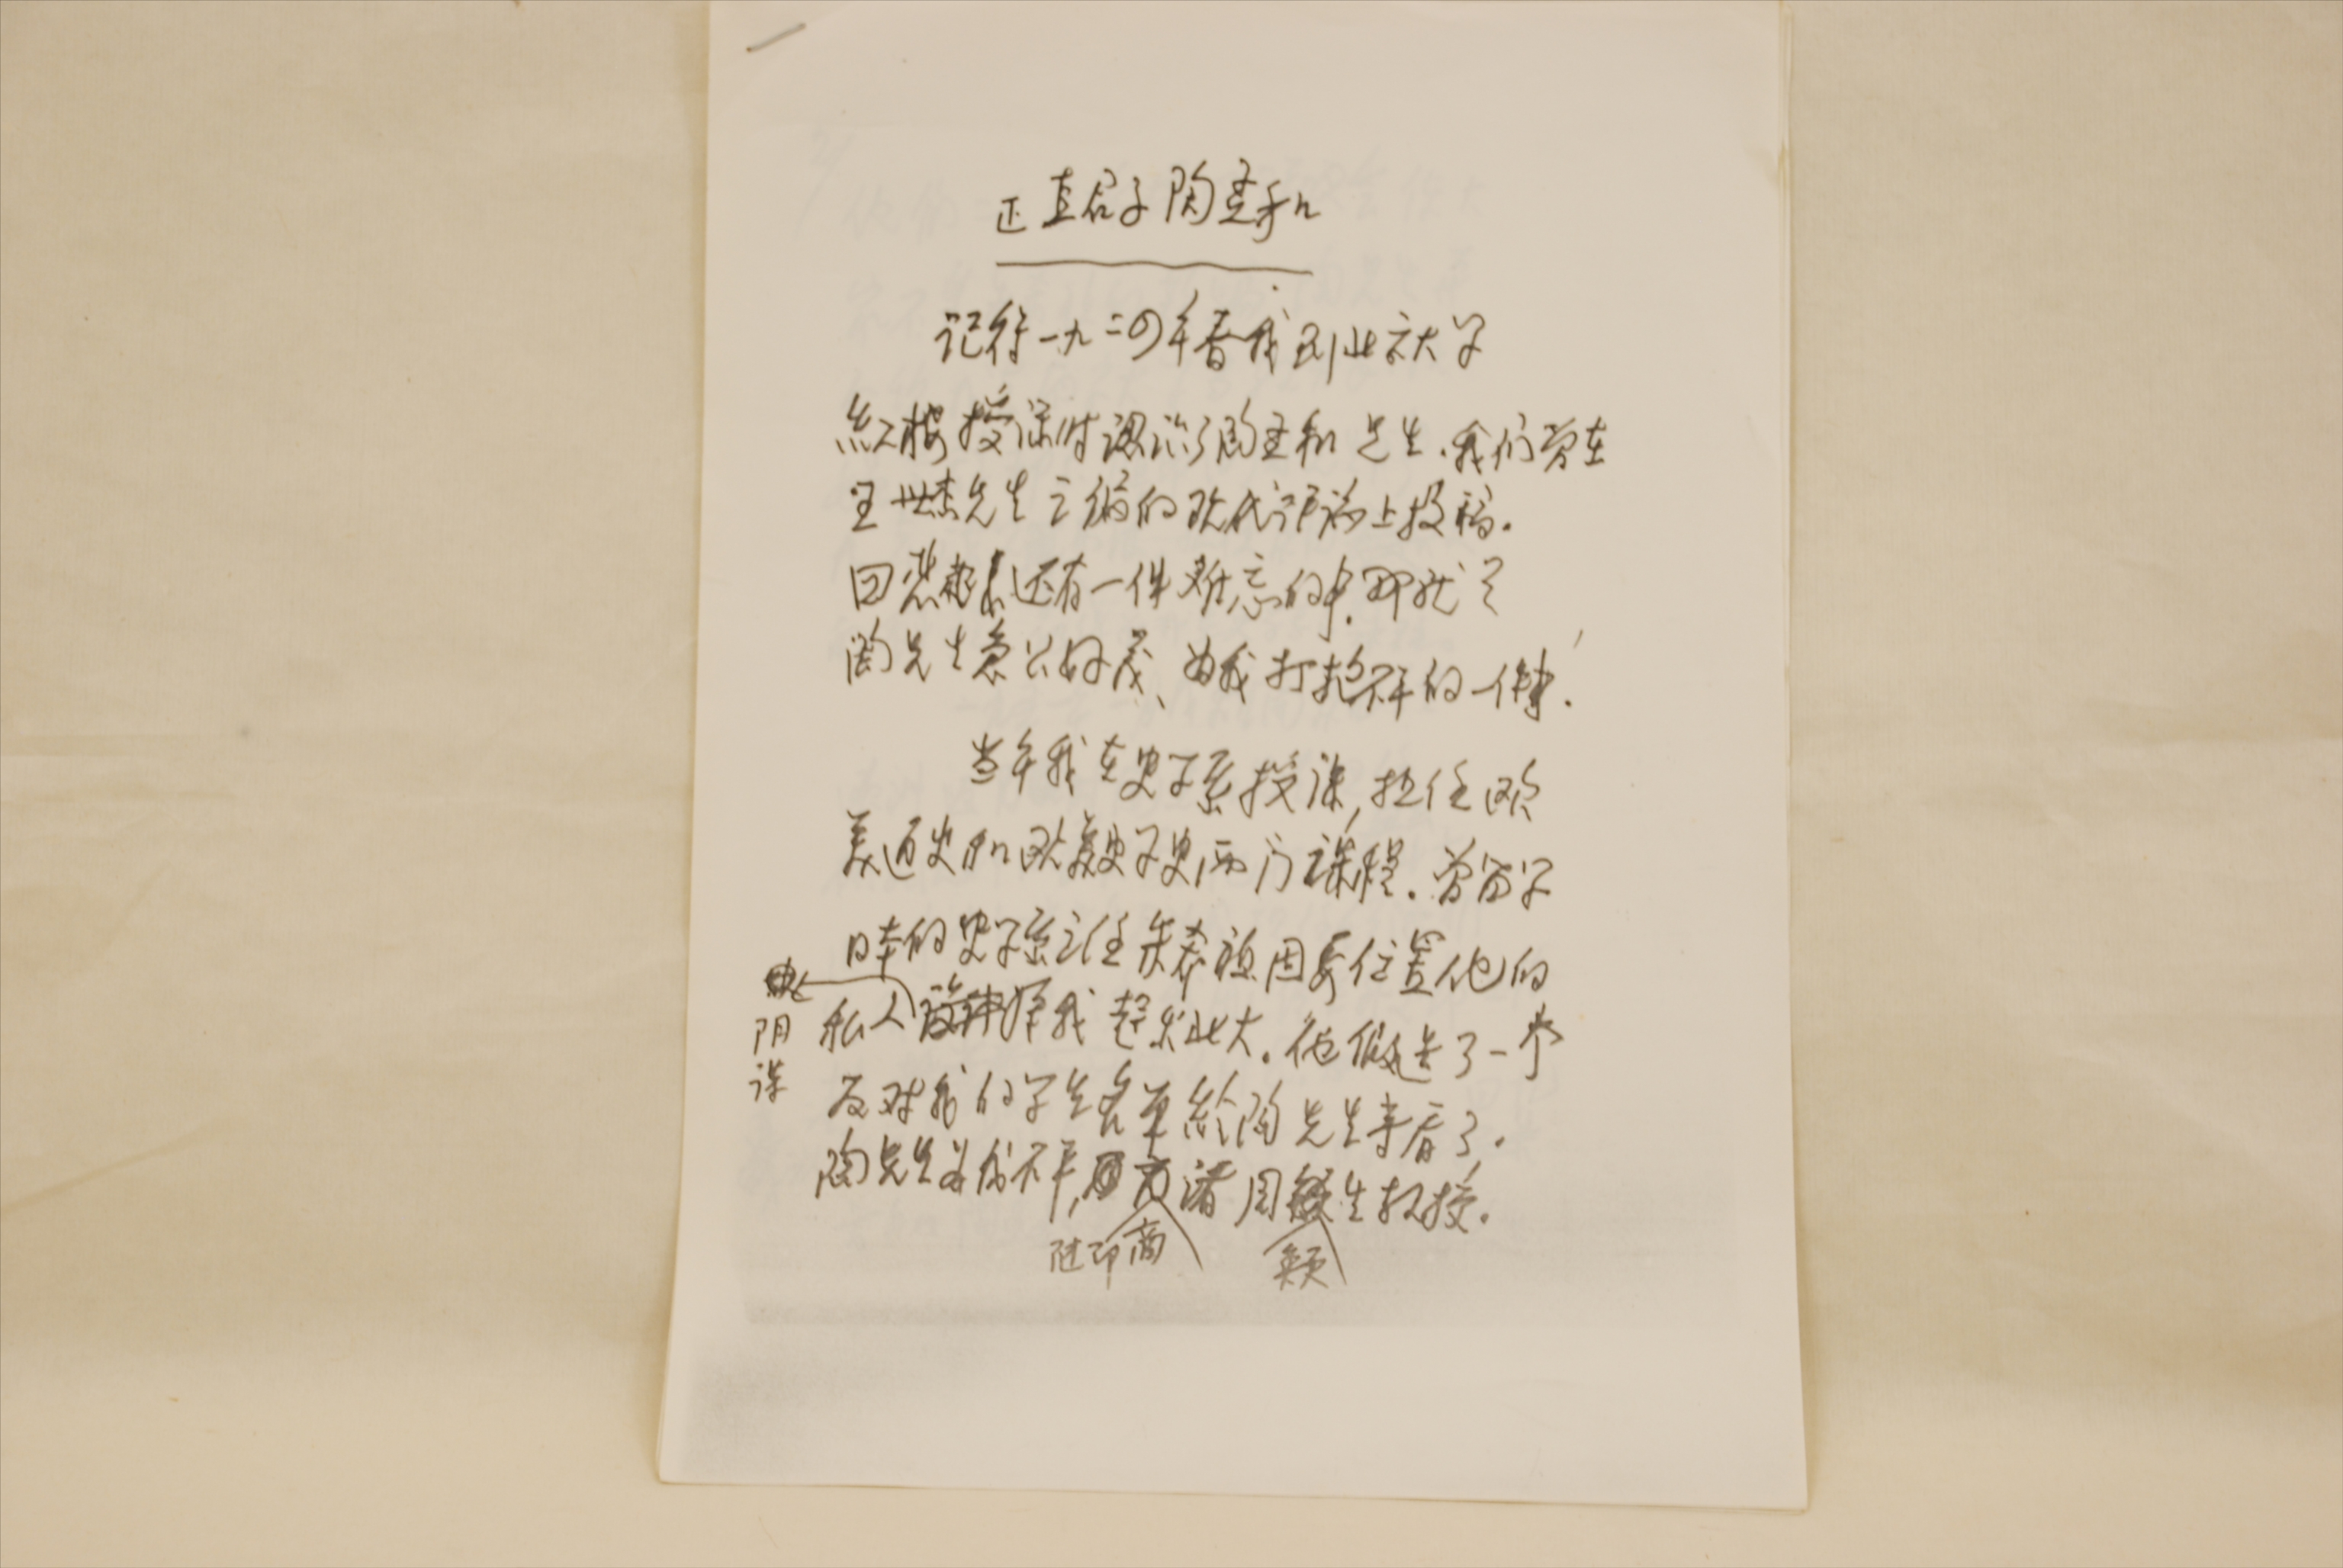 正直君子陶孟和
记得一九二四年春我到北京大学
红楼授课时認识了陶孟和先生.我们曾在
王世杰先生主编的现代评论上投稿.
回想起来还有一件难忘的事.那就是
陶先生急公好义、为我打抱不平的一件事.
当年我在史学系授课,担任欧
美通史和欧美史学史两门课程.曾留学
日本的史学系主任朱希祖因要位置他的
私人 将我赶出北大.他假造了一个
阴
谋
反对我的学生名单給陶先生拿看了.
陶先生为我不平, 请周 生教授.
陞即商
鲠